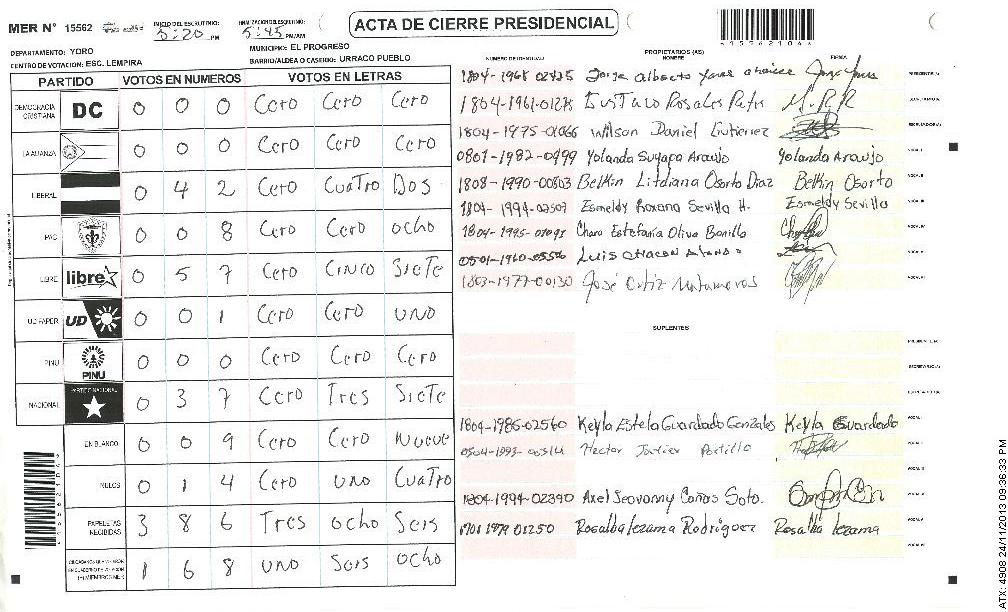 MER N° 15562 INICIO DEL ESCRUTINIO: 5:20 PM FINALIZACION ESCRUTINIO: 5:45 PM/AM
ACTA DE CIERRE PRESIDENCIAL
DEPARTAMENTO: YORO MUNICIPIO: EL PROGRESO
CENTRO DE VOTACION: ESC. LEMPIRA BARRIO/ALDEA O CASERIO: URRACO PUEBLO
PARTIDO VOTOS EN NUMEROS VOTOS EN LETRAS
DEMOCRACIA CRISTIANA DC 0 0 0 Cero Cero Cero
LA ALIANZA 0 0 0 Cero Cero Cero
LIBERAL 0 4 2 Cero Cuatro Dos
PAC 0 0 8 Cero Cero ocho
LIBRE libre 0 5 7 Cero Cinco Siete
UD FAPER UD 0 0 1 Cero Cero uno
PINU PINU 0 0 0 Cero Cero Cero
NACIONAL PARTIDO NACIONAL 0 3 7 Cero Tres Siete
EN BLANCO 0 0 9 Cero Cero Nueve
NULOS 0 1 4 Cero uno Cuatro
PAPELETAS RECIBIDAS 3 8 6 Tres ocho Seis
1 6 8 uno Seis ocho
PROPIETARIOS (AS)
NUMERO DE IDENTIDAD NOMBRE FIRMA
1804-1968 02425 Jorge Alberto PRESIDENTE(A)
1804-1961-01278 Gustavo Rosales M.R.R SECRETARIO(A)
1804-1975-01066 Wilson Daniel Gutierrez ESCRUTADOR(A)
0801-1982-0499 Yolanda Suyapa Araujo Yolanda Araujo VOCAL I
1808-1990-00803 Belkin Litdiana Osorto Diaz Belkin Osorto VOCAL II
1804-1994-02509 Esmeldy Roxana Sevilla H. Esmeldy Sevilla VOCAL III
1804-1995-01091 Charo Estefania Oliva Bonilla VOCAL IV
0501-1960-05556 Luis Chacon VOCAL V
1803-1977-00130 José Ortiz Matamoros VOCAL VI
SUPLENTES
PRESIDENTE(A)
SECRETARIO(A)
ESCRUTADOR(A)
1804-1985-02560 Keyla Estela Guardado Gonzales Keyla Guardado VOCAL I
Hector Javier Portillo VOCAL II
VOCAL III
1804-1994-02390 Axel Jeovanny Cañas Soto. VOCAL IV
1701 1979 01250 Rosalba Lezama Rodriguez Rosalba Lezama VOCAL V
VOCAL VI
ATX: 4908 24/11/2013 09:36:33 PM